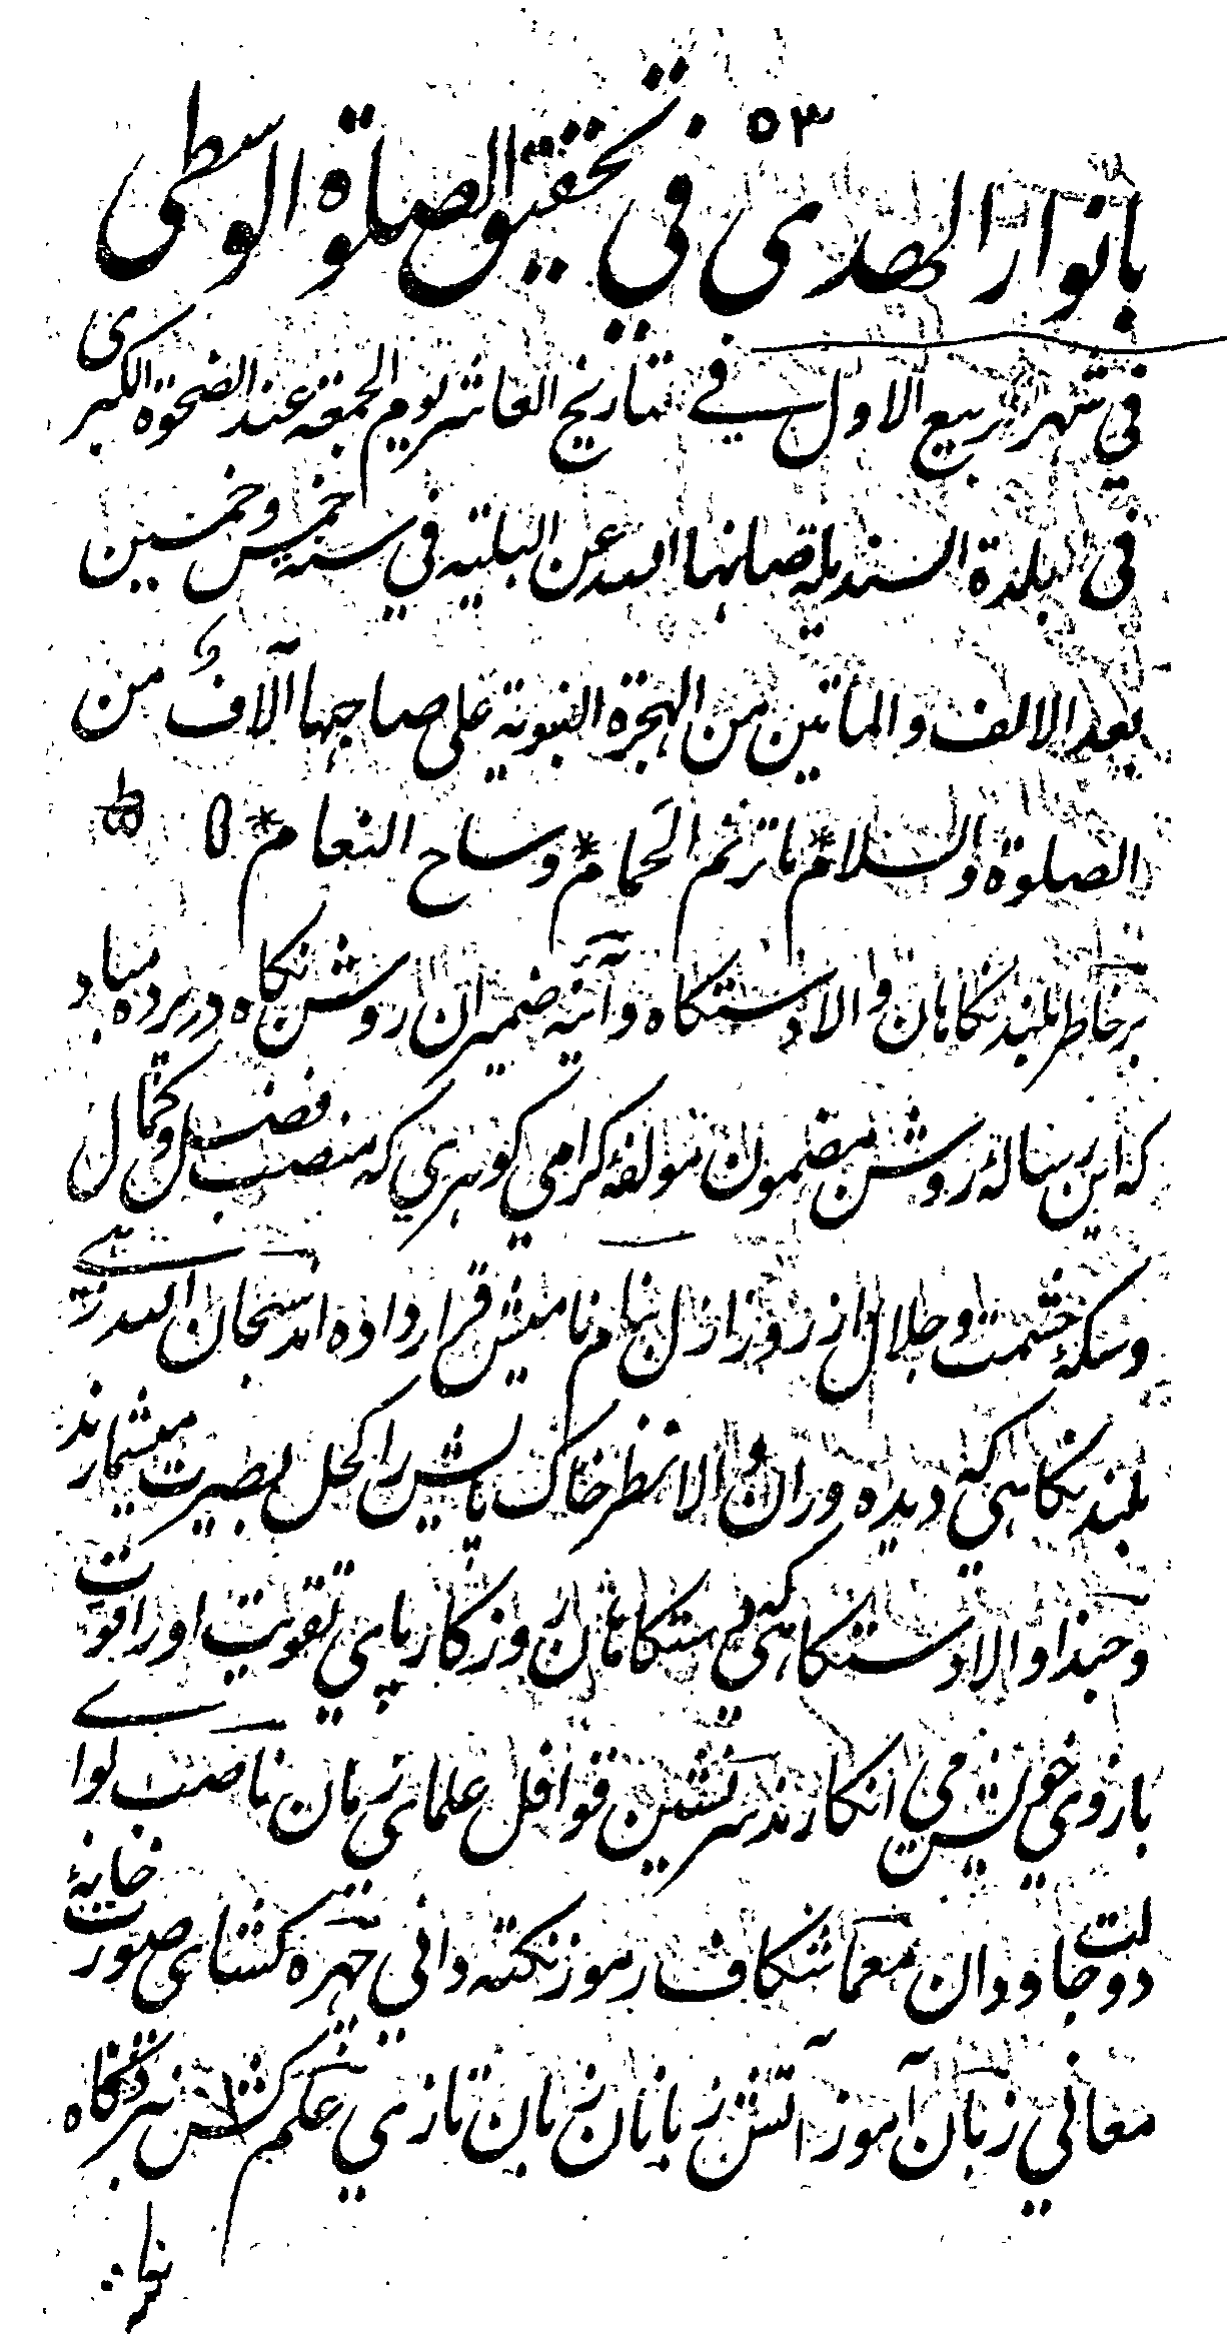 ٥٣
بانوار الهدى فى تحقيق الصلوة الوسطى
في شهر ربيع الاول في تاريخ العاشر يوم الجمعة عند الضحوة الكبرى
فى البلدة السنديلة صانها الله عن البلية في سنة خمس وخمسين
بعد الالف والمأتين من الهجرة النبوية على صاحبها آلاف من
الصلوة والسلام * ما ترنم الحمام * وساح النعام *
بر خاطر بلند نگاهان والا دستگاه و آئنه ضميران روشن نگاه در پرده مباد
که اين رسالهٔ روشن مضمون مولفهٔ گرامي گوهري که منصب فضل و کمال
و سکهٔ حشمت و جلال از روز ازل بنام ناميش قرار داده اند سبحان الله زهے
بلند نگاهي که ديده وران والا نظر خاک پايش را کحل بصيرت ميشمارند
و حبذا والا دستگاهي که دستگاهان روزگار پاي تقويت او را قوت
بازوي خويش مي انگارند سرنشين قوافل علماى زمان ناصب لواے
دولت جاودان معما شگاف رموز نکته داني چهره کشاى صور خانهٔ
معاني زبان آموز آتش زبانان زبان تازي علم کش نبردگاه